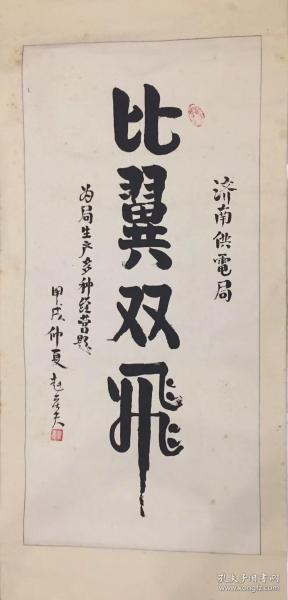 济南供電局
比翼双飛
为局生产多种经营题
甲戌仲夏
孔夫子旧书网